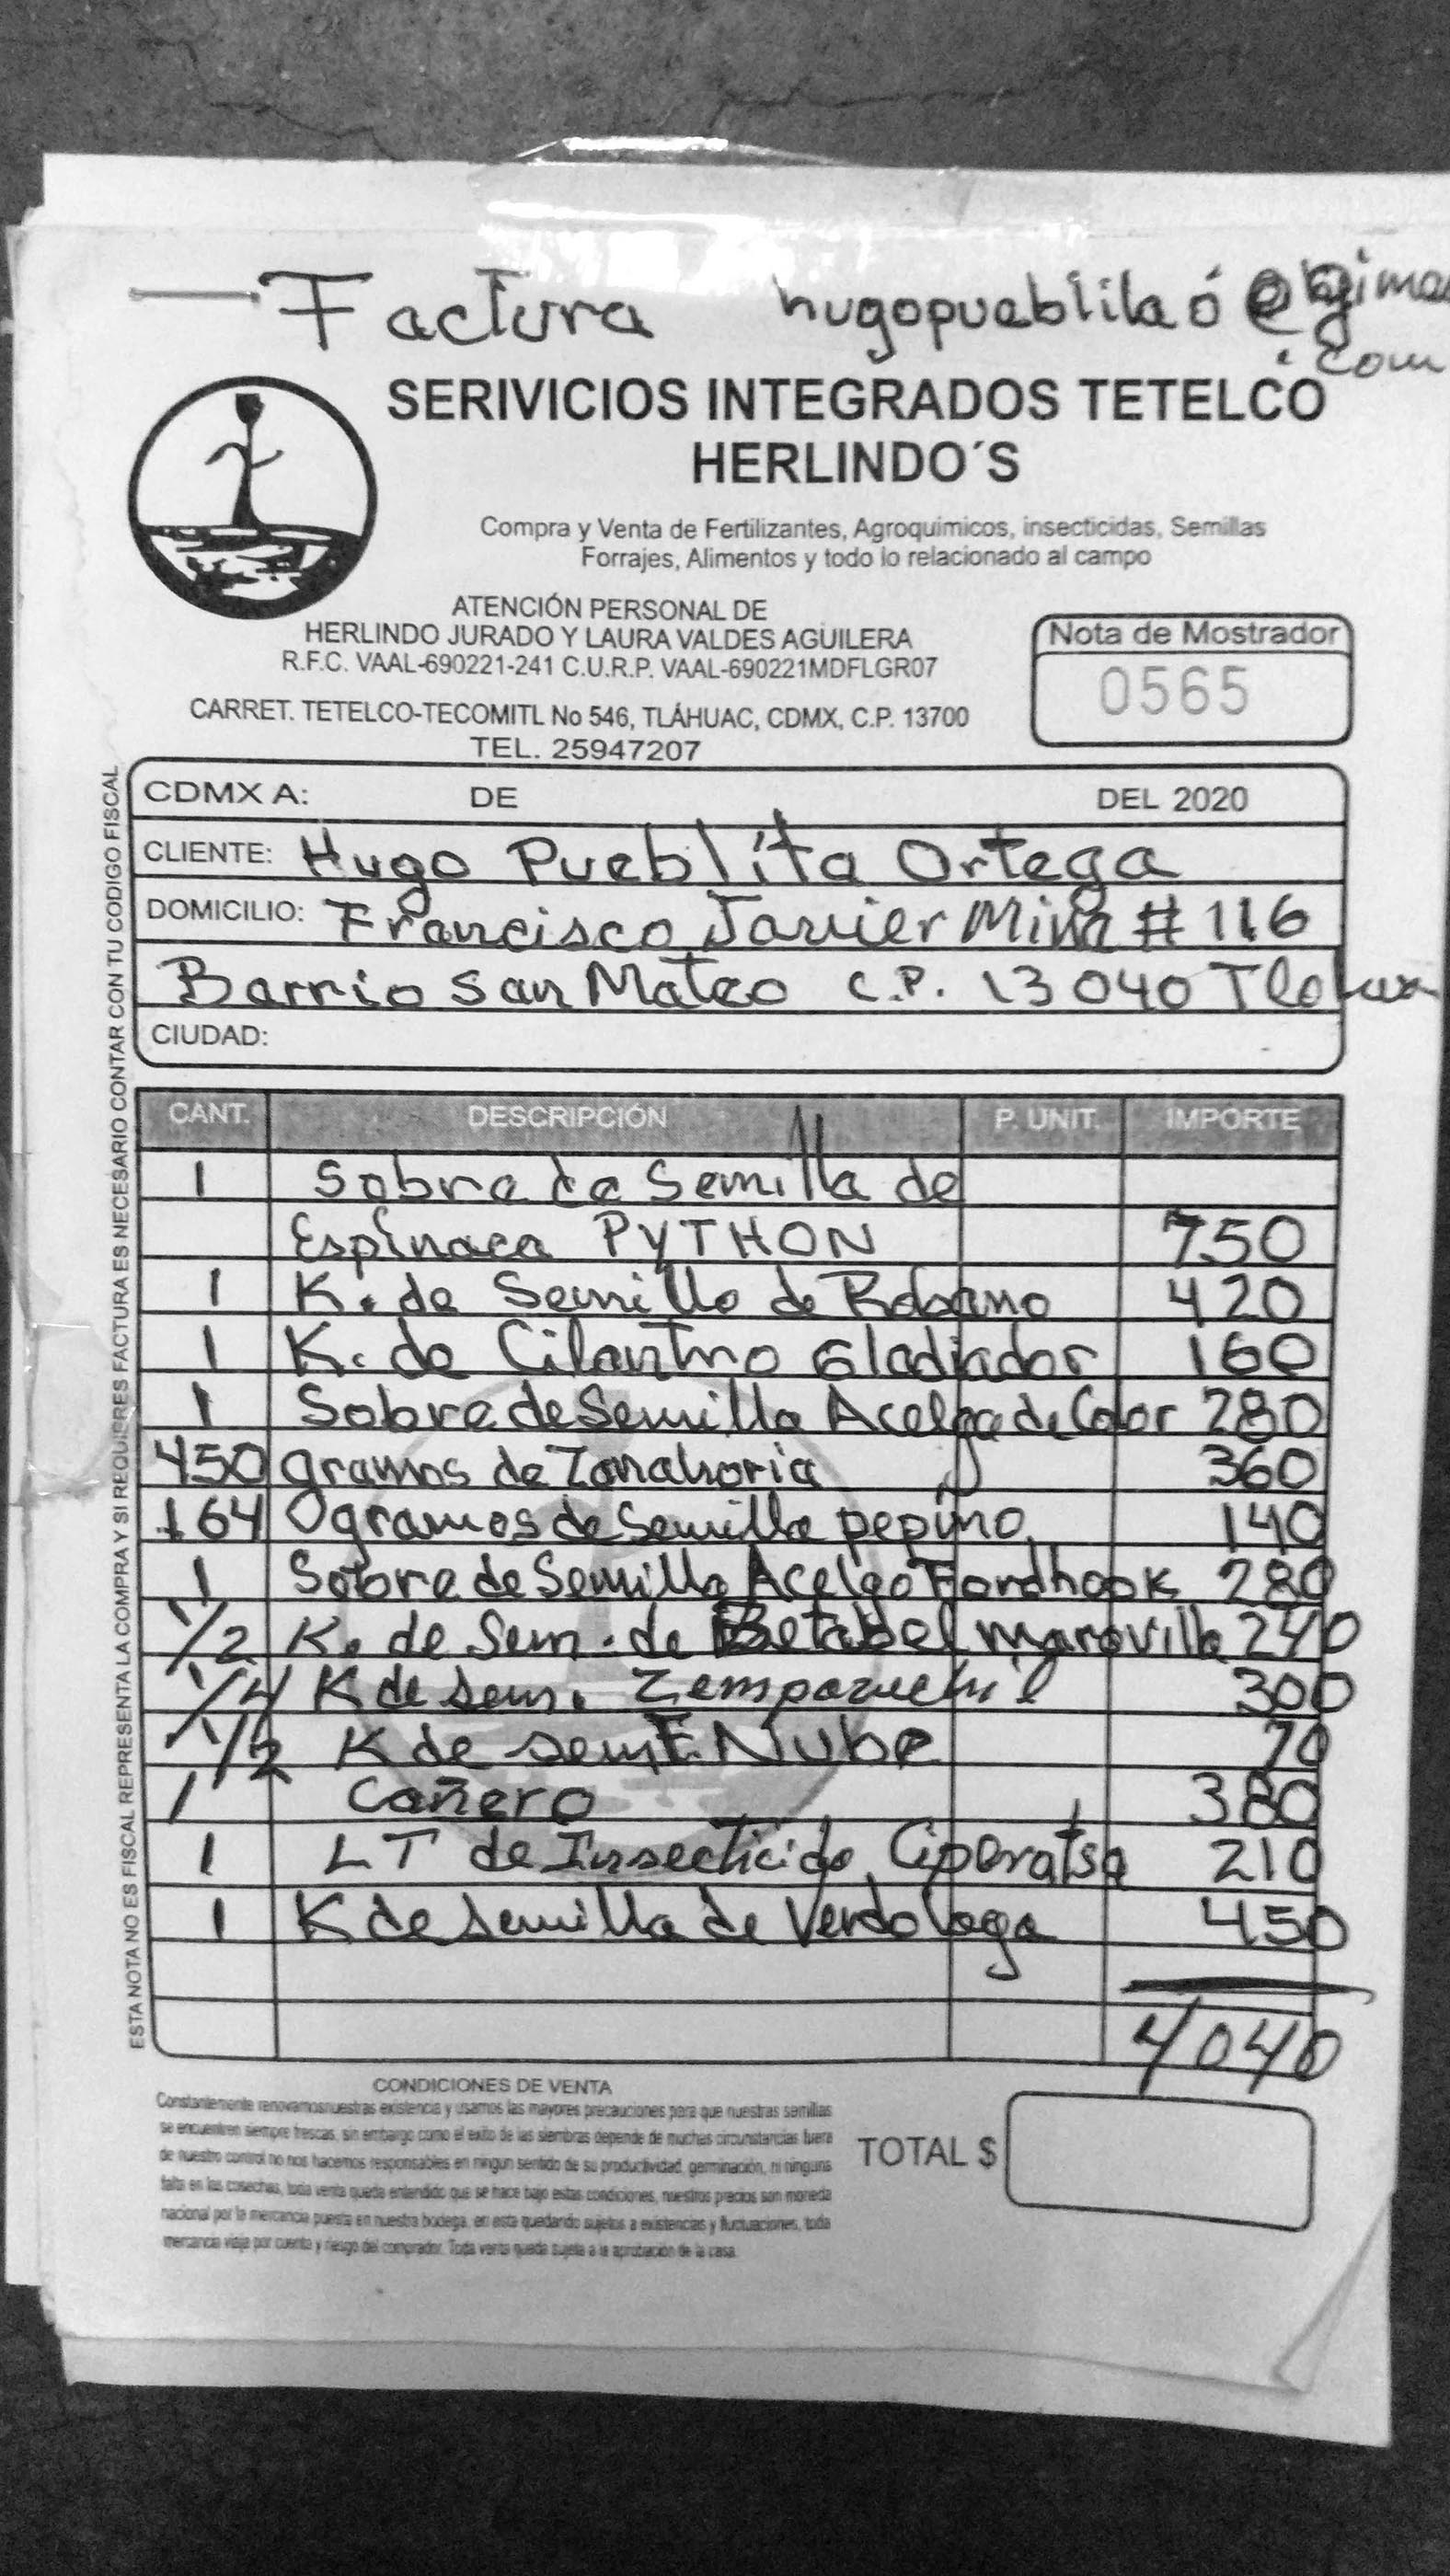 Factura hugopueblila
.com
SERIVICIOS INTEGRADOS TETELCO
HERLINDO´S
Compra y Venta de Fertilizantes, Agroquimicos, insecticidas, Semillas
Forrajes, Alimentos y todo lo relacionado al campo
ATENCIÓN PERSONAL DE
HERLINDO JURADO Y LAURA VALDES AGUILERA
R.F.C. VAAL-690221-241 C.U.R.P. VAAL-690221MDFLGR07
CARRET. TETELCO-TECOMITL No 546, TLÁHUAC, CDMX, C.P. 13700
TEL. 25947207
Nota de Mostrador
0565
CDMX A: DE DEL 2020
CLIENTE: Hugo Pueblita Ortega
DOMICILIO: Francisco Javier Mina # 116
Barrio San Mateo C.P. 13040
CIUDAD:
CANT. DESCRIPCIÓN P. UNIT. IMPORTE
1 Sobre de Semilla de
Espinaca PYTHON 750
1 K. de Semilla de Rabano 420
1 K. de Cilantro Gladiador 160
1 Sobre de Semilla Acelga de Color 280
450 gramos de Zanahoria 360
164 gramos de Semilla pepino 140
1 Sobre de Semilla Acelga Fordhook 280
1/2 K. de Sem. de Betabel maravilla 240
1/4 K de sem. Zempazuchil 300
1/2 K de sem F. Nube 70
1 Cañero 380
1 LT de Insecticida 210
1 K de semilla de Verdolaga 450
4040
CONDICIONES DE VENTA
Constantemente renovamos nuestras existencia y usamos las mayores precauciones para que nuestras semillas
se encuentren siempre frescas, sin embargo como el exito de las siembras depende de muchas circunstancias fuera
de nuestro control no nos hacemos responsables en ningun sentido de su productividad, germinación, ni ninguna
falta en las cosechas, toda venta queda entendido que se hace bajo estas condiciones, nuestros precios son moneda
nacional por la mercancia puesta en nuestra bodega, en esta quedando sujetos a existencias y fluctuaciones, toda
mercancia viaja por cuenta y riesgo del comprador. Toda venta queda sujeta a la aprobación de la casa.
TOTAL $
ESTA NOTA NO ES FISCAL REPRESENTA LA COMPRA Y SI REQUIERES FACTURA ES NECESARIO CONTAR CON TU CODIGO FISCAL